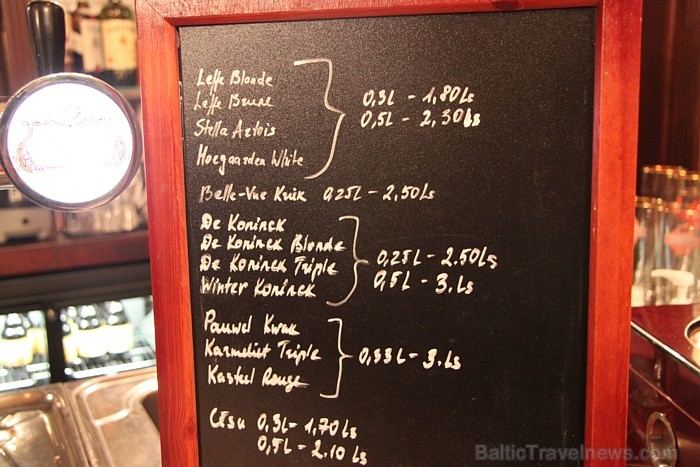 Leffe Blonde
Leffe Brune
Stella Artois
Hoegaarden White
0,3L - 1,80Ls
0,5L - 2,30Ls
Belle-Vue Kriek 0,25L - 2,50Ls
De Koninck
De Koninck Blonde
De Koninck Triple
Winter Koninck
0,25L - 2.50Ls
0,5L - 3.Ls
Pauwel Kwak
Karmeliet Triple
Kastel Rouge
0,33L - 3.Ls
Cēsu 0,3L - 1,70Ls
0,5L - 2.10Ls
BalticTravelnews.com